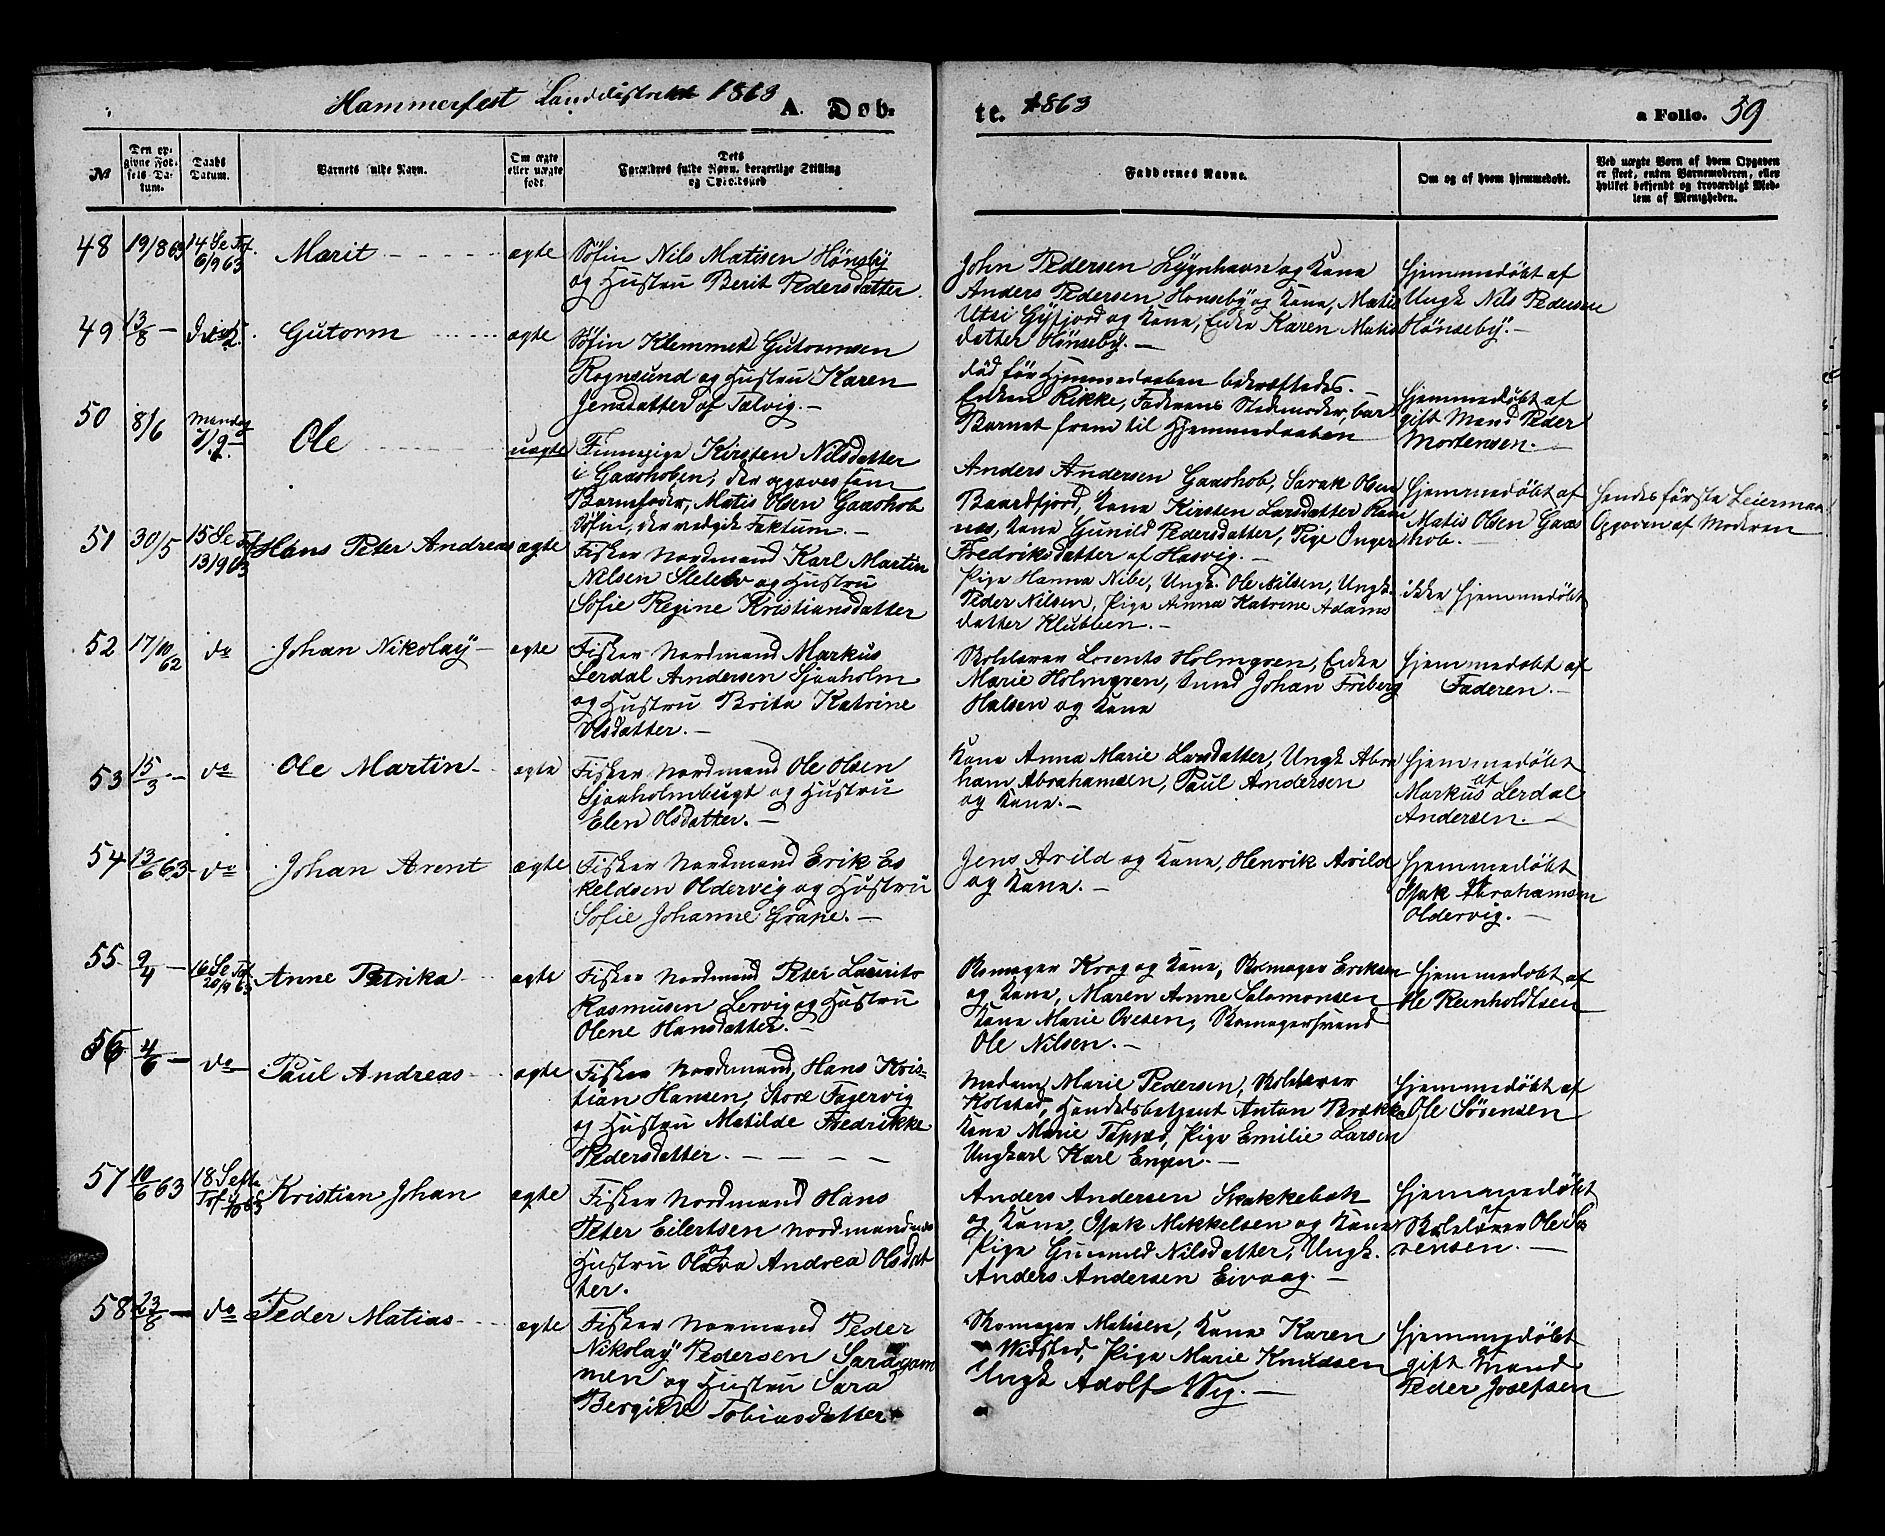 Hammerfest Landdistrikt 1863 A. Døb-
te. 1863 a Folio. 59
No
Den op-
givne Fød-
sels Da-
tum.
Daabs
Datum.
Barnets fulde Navn.
Om ægte
eller uægte
født.
Dets
Forældres fulde Navn, borgerlige Stilling
og Opholdssted
Faddernes Navne.
Om og af hvem hjemmedøbt.
Ved uægte Børn af hvem Opgaven
er skeet, enten Barnemoderen, eller
hvilket bekjendt og troværdigt Med-
lem af Menigheden.
48 19/8 63 14 Se Tref. 6/9 63 Marit ægte
Søfin Nils Matisen Hønseby
og Hustru Berit Pedersdatter.
John Pedersen Lygnhavn og Kone
Anders Pedersen Honseby og Kone, Matis
Utsi Gyfjord og Kone, Enke Karen Matis
datter Hönseby.-
Hjemmedöbt af
Ungk Nils Pedersen
Hönseby.-
49 13/8 - Gutorm ægte
Søfin Klemmet Gutormsen
Rognsund og Hustru Karen
Jensdatter af Talvig.-
död för Hjemmedaaben bekræftedes.-
Enken Rikke, Faderens Stedmoder, bar
Barnet frem til Hjemmedaaben
Hjemmedöbt af
gift Mand Peder
Mortensen.-
50 8/6 Mandag 7/9 - Ole uægte
Finnepige Kirsten Nilsdatter
i Gaashoben, der opgaves som
Barnefader, Matis Olsen Gaashob
Søfin, der vedgik Faktum.-
Anders Andersen Gaashob, Sarak Olsen
Baardfjord, Kone Kirsten Larsdatter
Kone Gunild Pedersdatter, Pige Inger
Fredriksdatter af Hasvig.-
Hjemmedöbt af
Matis Olsen Gaas
hob.-
Hendes første Leiermaal
Opgaven af Moderen
51 30/5 15 Se Tref 13/9 63 Hans Peter Andreas ægte
Fisker Nordmand Karl Martin
Nilsen og Hustru
Sofie Regine Kristiansdatter
Pige Hanna Nibe, Ungk. Ole Nilsen, Ungk.
Peder Nilsen, Pige Anna Katrine Adams
datter Klubben.-
ikke Hjemmedöbt
52 17/10 62 do Johan Nikolay - ægte
Fisker Nordmand Markus
Lerdal Andersen Sjaaholm
og Hustru Brita Katrine
Olsdatter.-
Skolelærer Lorents Holmgren, Enke
Marie Holmgren, Smed Johan Friberg
Halsen og Kone
Hjemmedöbt af
Faderen.-
53 15/3 - do Ole Martin - ægte
Fisker Nordmand Ole Olsen
Sjaaholmbugt og Hustru
Elen Olsdatter.-
Kone Anna Marie Larsdatter, Ungk Abra
ham Abrahamsen, Paul Andersen
og Kone.-
Hjemmedöbt
af
Markus Lerdal
Andersen.-
54 13/6 63 do Johan Arent ægte
Fisker Nordmand Erik Es
keldsen Oldervig og Hustru
Sofie Johanne Grape.-
Jens Arild og Kone, Henrik Arild
og Kone.-
Hjemmedöbt
af
Isak Abrahamsen
Oldervig.-
55 9/4 - 16 Se Tref 20/9 63 Anne Petrika ægte
Fisker Nordmand Peter Laurits
Rasmusen Lervig og Hustru
Olene Hansdatter.-
Skomager Krog og Kone, Skomager Eriksen
og Kone, Maren Anne Salomonsen
Kone Marie Ovesen, Skomagersvend
Ole Nilsen.-
Hjemmedöbt af
Ole Reinholdtsen
56 4/6 - do Paul Andreas ægte
Fisker Nordmand Hans Kris-
tian Hansen, Store Fagervig
og Hustru Matilde Fredrikke
Pedersdatter.-
Madam Marie Pedersen, Skolelærer
Kolstad, Handelsbetjent Anton Brække
Kone Marie Pige Emilie Larsen
Ungkarl Karl Engen.-
Hjemmedöbt af
Ole Sørensen
57 10/6 63 18 Sept Tref 4/10 63 Kristian Johan ægte
Fisker Nordmand Hans
Peter Eilertsen
og
Hustru Olava Andrea Olsdat
ter.
Anders Andersen Skakkebæk
og Kone, Isak Mikkelsen og Kone
Pige Gunnild Nilsdatter, Ungk.
Anders Andersen Eivaag.-
Hjemmedöbt
af
Skolelærer Ole Sø
rensen.-
58 23/6 - do Peder Matias ægte
Fisker Normand Peder
Nikolay Pedersen Saragam
men og Hustru Sara
Bergitte Tobiasdatter
Skomager Matisen, Kone Karen
Widsted, Pige Marie Knudsen
Ungk Adolf Wig.-
Hjemmedöbt
af
gift Mand
Peder Josefsen